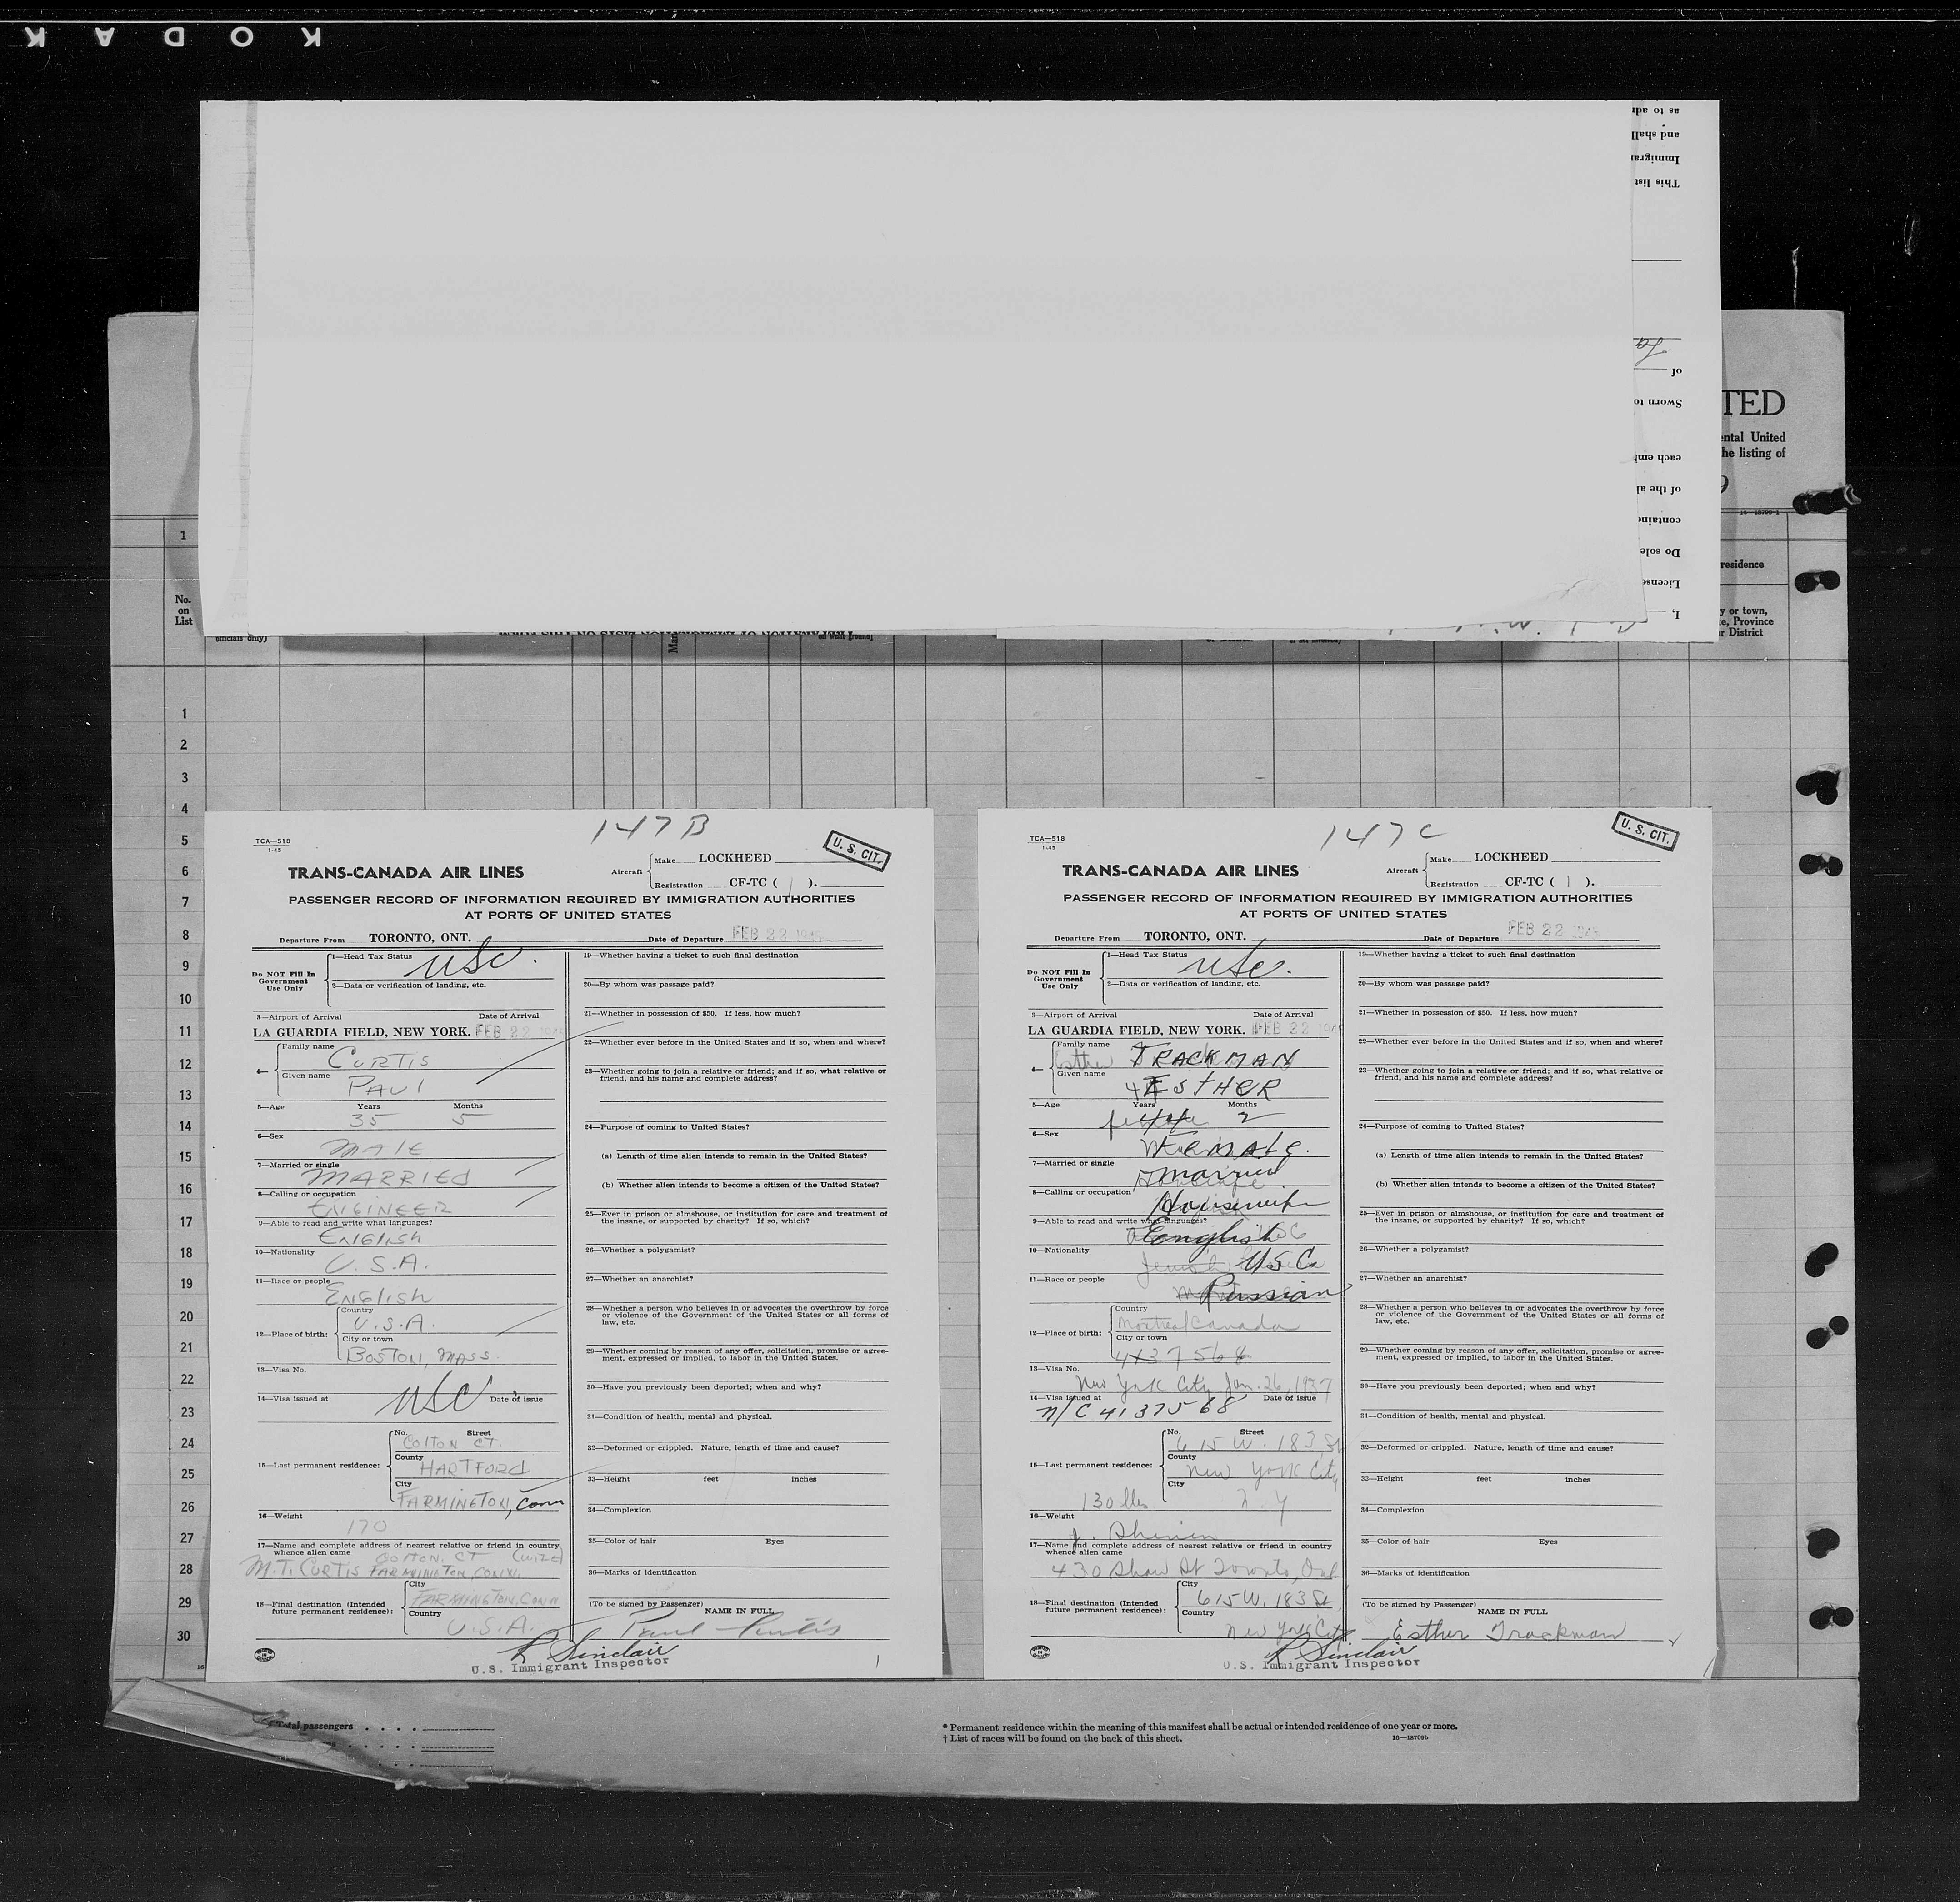 KODAK
as to adm
and shall
Immigra
This list
of
Sworn to
each em
of the al
containe
Do sole
License
I,
TED
ental United
he listing of
9
16—18709-1
1
No.
on
List
officials only)
residence
y or town,
te, Province
r District
1
2
3
4
5
6
7
8
9
10
11
12
13
14
15
16
17
18
19
20
21
22
23
24
25
26
27
28
29
30
147 B
TCA—518
1-45
U. S. CIT.
TRANS-CANADA AIR LINES
Aircraft
Make LOCKHEED
Registration CF-TC ( ).
PASSENGER RECORD OF INFORMATION REQUIRED BY IMMIGRATION AUTHORITIES
AT PORTS OF UNITED STATES
Departure From TORONTO, ONT. Date of Departure FEB 22 1945
Do NOT Fill In
Government
Use Only
1—Head Tax Status USC.
2—Data or verification of landing, etc.
3—Airport of Arrival Date of Arrival
LA GUARDIA FIELD, NEW YORK. FEB 22 1945
4—
Family name CURTIS
Given name PAUL
5—Age Years Months
35 5
6—Sex
MALE
7—Married or single
MARRIED
8—Calling or occupation
ENGINEER
9—Able to read and write what languages?
ENGLISH
10—Nationality
U.S.A.
11—Race or people
ENGLISH
12—Place of birth:
Country
U.S.A.
City or town
BOSTON, MASS.
13—Visa No.
14—Visa issued at USC Date of issue
15—Last permanent residence:
No. Street
COLTON CT.
County
HARTFORD
City
FARMINGTON, Conn
16—Weight
170
17—Name and complete address of nearest relative or friend in country
whence alien came COLTON. CT (WIFE)
M.T. CURTIS FARMINGTON, CONN.
18—Final destination (Intended
future permanent residence):
City
FARMINGTON, CONN
Country
U.S.A.
19—Whether having a ticket to such final destination
20—By whom was passage paid?
21—Whether in possession of $50. If less, how much?
22—Whether ever before in the United States and if so, when and where?
23—Whether going to join a relative or friend; and if so, what relative or
friend, and his name and complete address?
24—Purpose of coming to United States?
(a) Length of time alien intends to remain in the United States?
(b) Whether alien intends to become a citizen of the United States?
25—Ever in prison or almshouse, or institution for care and treatment of
the insane, or supported by charity? If so, which?
26—Whether a polygamist?
27—Whether an anarchist?
28—Whether a person who believes in or advocates the overthrow by force
or violence of the Government of the United States or all forms of
law, etc.
29—Whether coming by reason of any offer, solicitation, promise or agree-
ment, expressed or implied, to labor in the United States.
30—Have you previously been deported; when and why?
31—Condition of health, mental and physical.
32—Deformed or crippled. Nature, length of time and cause?
33—Height feet inches
34—Complexion
35—Color of hair Eyes
36—Marks of identification
(To be signed by Passenger)
NAME IN FULL
Paul Curtis
R Sinclair
U.S. Immigrant Inspector
147 C
TCA—518
1-45
U. S. CIT.
TRANS-CANADA AIR LINES
Aircraft
Make LOCKHEED
Registration CF-TC ( ).
PASSENGER RECORD OF INFORMATION REQUIRED BY IMMIGRATION AUTHORITIES
AT PORTS OF UNITED STATES
Departure From TORONTO, ONT. Date of Departure FEB 22 1945
Do NOT Fill In
Government
Use Only
1—Head Tax Status USC.
2—Data or verification of landing, etc.
3—Airport of Arrival Date of Arrival
LA GUARDIA FIELD, NEW YORK. FEB 22 194
4—
Family name
Esther TRACKMAN
Given name
ESTHER
5—Age Years Months
2
6—Sex
FEMALE.
7—Married or single
Married
8—Calling or occupation
Housewife
9—Able to read and write what languages?
English
10—Nationality
Jewish USC
11—Race or people
Russian
12—Place of birth:
Country
Montreal Canada
City or town
4137568
13—Visa No.
New York City Jan. 26, 1937
14—Visa issued at Date of issue
N/C 4137568
15—Last permanent residence:
No. Street
615 W. 183 St
County
New York City
City
N.Y
130 lbs
16—Weight
17—Name and complete address of nearest relative or friend in country
whence alien came
430 Shaw St Toronto, Ont
18—Final destination (Intended
future permanent residence):
City
615 W. 183 St.
Country
New York City
19—Whether having a ticket to such final destination
20—By whom was passage paid?
21—Whether in possession of $50. If less, how much?
22—Whether ever before in the United States and if so, when and where?
23—Whether going to join a relative or friend; and if so, what relative or
friend, and his name and complete address?
24—Purpose of coming to United States?
(a) Length of time alien intends to remain in the United States?
(b) Whether alien intends to become a citizen of the United States?
25—Ever in prison or almshouse, or institution for care and treatment of
the insane, or supported by charity? If so, which?
26—Whether a polygamist?
27—Whether an anarchist?
28—Whether a person who believes in or advocates the overthrow by force
or violence of the Government of the United States or all forms of
law, etc.
29—Whether coming by reason of any offer, solicitation, promise or agree-
ment, expressed or implied, to labor in the United States.
30—Have you previously been deported; when and why?
31—Condition of health, mental and physical.
32—Deformed or crippled. Nature, length of time and cause?
33—Height feet inches
34—Complexion
35—Color of hair Eyes
36—Marks of identification
(To be signed by Passenger)
NAME IN FULL
Esther Trackman
R Sinclair
U.S. Immigrant Inspector
Total passengers
* Permanent residence within the meaning of this manifest shall be actual or intended residence of one year or more.
† List of races will be found on the back of this sheet.
16—18709b